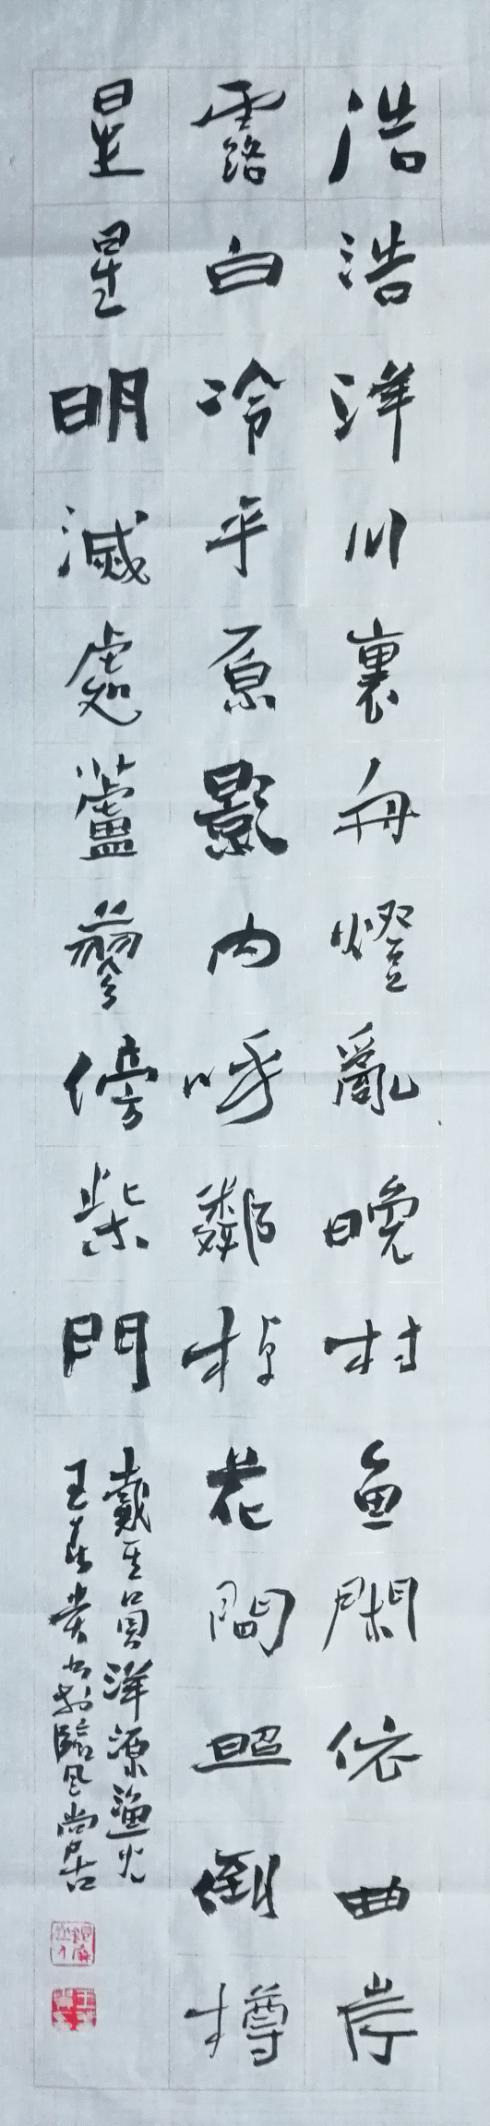 浩浩洋川裏舟燈亂晚村鱼閑依曲岸
露白冷平原影内呼鄰棹花間照倒樽
星星明滅處蘆蓼傍柴門
戴生員洋源漁火
王春貴书於臨風尚居